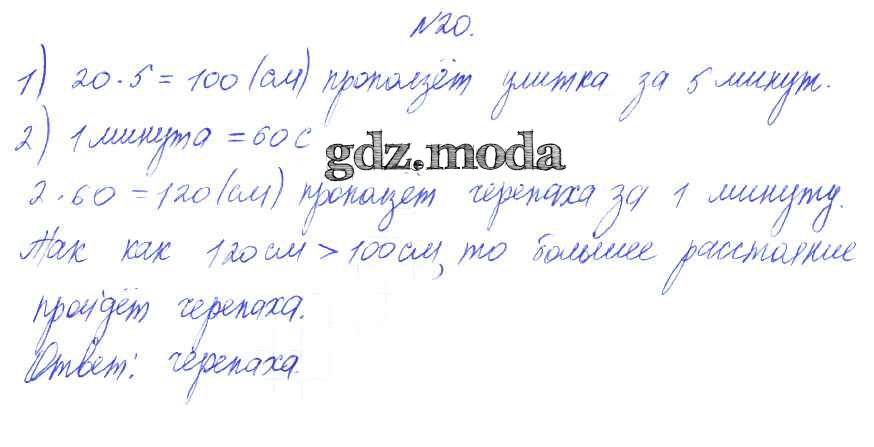 №20.
1) 20·5=100(см) проползёт улитка за 5 минут.
2) 1 минута = 60с
gdz.moda
2·60=120(см) проползёт черепаха за 1 минуту.
Так как 120см>100см, то большее расстояние
пройдёт черепаха.
Ответ: черепаха.